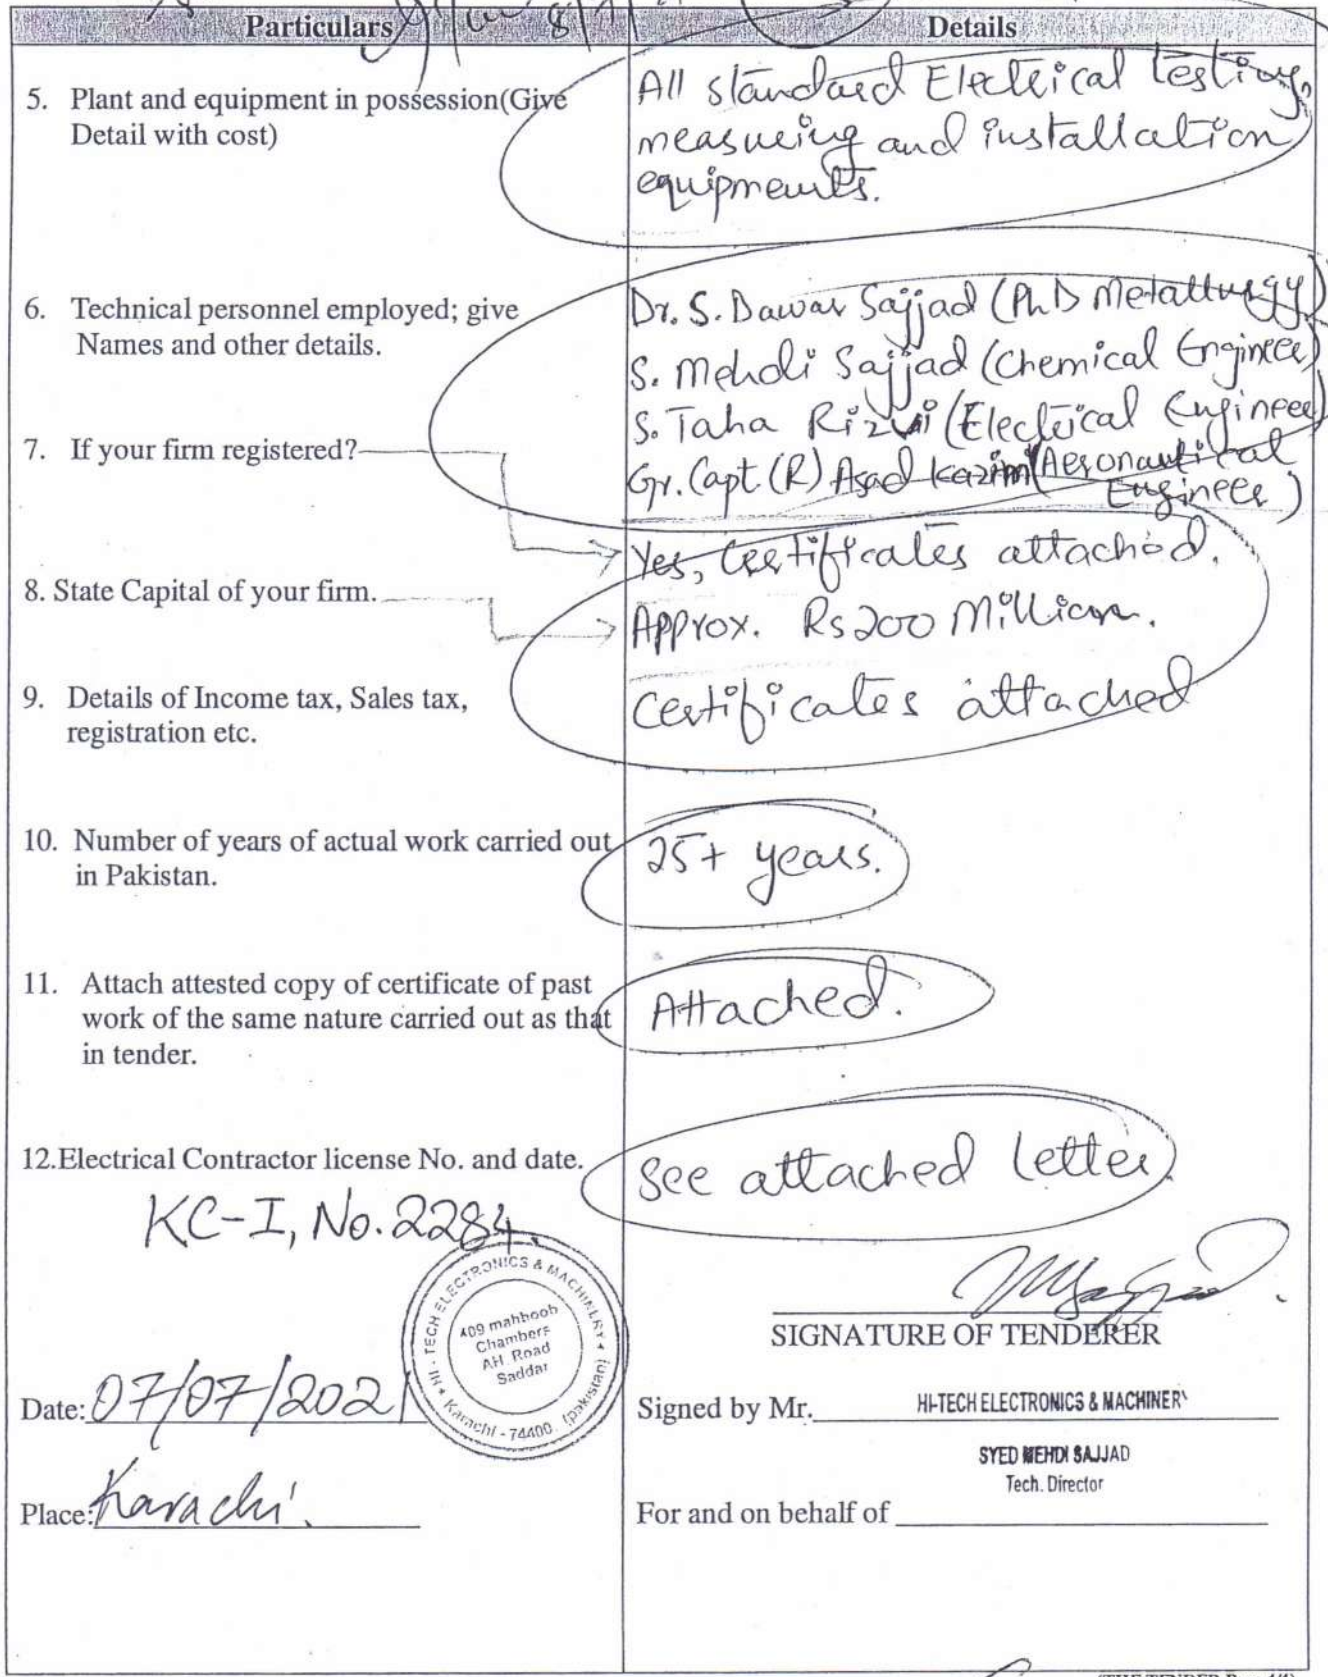 Particulars
Details
5. Plant and equipment in possession(Give
Detail with cost)
All standard Electrical testing,
measuring and installation
equipments.
6. Technical personnel employed; give
Names and other details.
Dr. S. Dawar Sajjad (Ph.D Metallurgy)
S. Mehdi Sajjad (Chemical Engineer)
S. Taha Rizvi (Electrical Engineer)
Gr. Capt (R) Asad Kazim (Aeronautical
Engineer)
7. If your firm registered?
Yes, Certificates attached.
8. State Capital of your firm.
Approx. Rs 200 Million.
9. Details of Income tax, Sales tax,
registration etc.
Certificates attached
10. Number of years of actual work carried out
in Pakistan.
25+ years.
11. Attach attested copy of certificate of past
work of the same nature carried out as that
in tender.
Attached.
12.Electrical Contractor license No. and date.
See attached letter
KC-I, No. 2284.
HI-TECH ELECTRONICS & MACHINERY
409 mahboob
Chambers
AH. Road
Saddar
Karachi - 74400. (pakistan)
SIGNATURE OF TENDERER
Date: 07/07/2021
Signed by Mr. HI-TECH ELECTRONICS & MACHINERY
SYED MEHDI SAJJAD
Tech. Director
Place: Karachi.
For and on behalf of